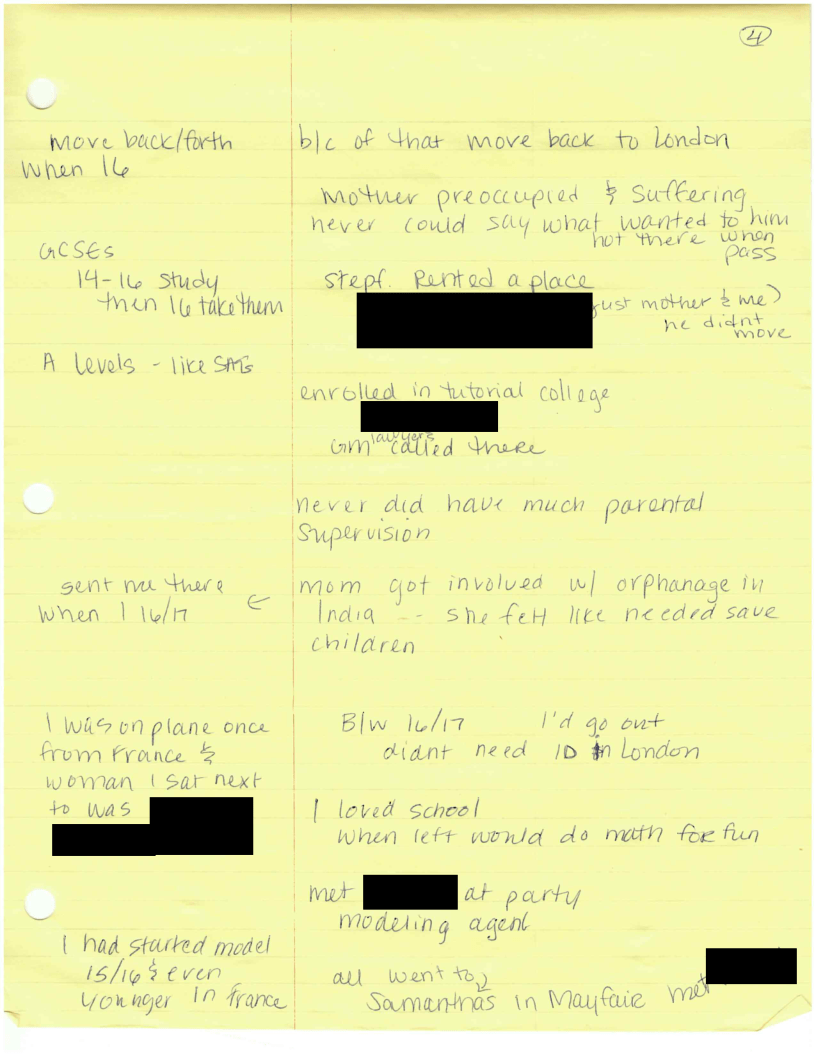 4
move back/forth
when 16
GCSEs
14-16 study
then 16 take them
A levels - like SATs
sent me there
when I 16/17 ←
I was on plane once
from France &
woman I sat next
to was
I had started model
15/16 & even
younger in France
b/c of that move back to London
Mother preoccupied & suffering
never could say what wanted to him
not there when
pass
stepf. Rented a place
just mother & me)
he didnt
move
enrolled in tutorial college
lawyers
GM called there
never did have much parental
supervision
mom got involved w/ orphanage in
India -- she felt like needed save
children
B/w 16/17 I'd go out
didnt need ID in London
I loved school
when left would do math for fun
met at party
modeling agent
all went to
Samanthas in Mayfair met